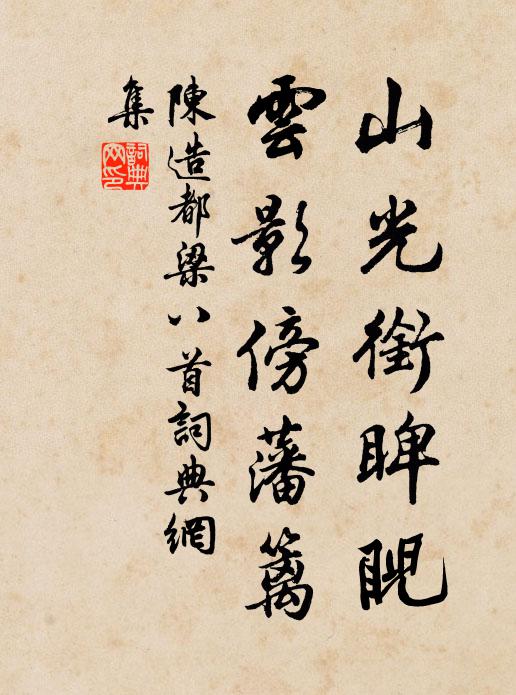 山光銜睥睨
雲影傍藩籬
陳造都梁八首詞典網
集
詞典網印